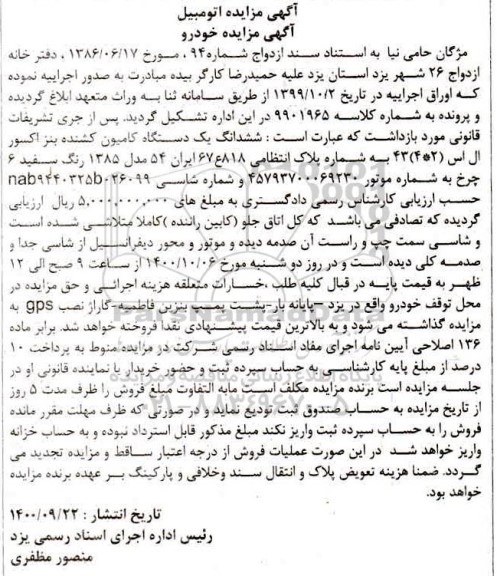 آگهی مزایده اتومبیل
آگهی مزایده خودرو
مژگان حامی نیا به استناد سند ازدواج شماره۹۴ ، مورخ ۱۳۸۶/۰۶/۱۷ ، دفتر خانه
ازدواج ۲۶ شهر یزد استان یزد علیه حمیدرضا کارگر بیده مبادرت به صدور اجراییه نموده
که اوراق اجراییه در تاریخ ۱۳۹۹/۱۰/۲ از طریق سامانه ثنا به وراث متعهد ابلاغ گردیده
و پرونده به شماره کلاسه ۹۹۰۱۹۶۵ در این اداره تشکیل گردید. پس از جری تشریفات
قانونی مورد بازداشت که عبارت است : ششدانگ یک دستگاه کامیون کشنده بنز اکسور
ال اس (۲*۴)۴۳ به شماره پلاک انتظامی ۸۱۸ع۶۷ ایران ۵۴ مدل ۱۳۸۵ رنگ سفید ۶
چرخ به شماره موتور ۴۵۷۹۳۷۰۰۰۶۹۲۳۰ و شماره شاسی nab۹۴۴۰۳۲۵b۰۲۶۰۹۹
حسب ارزیابی کارشناس رسمی دادگستری به مبلغ های ۵,۰۰۰,۰۰۰,۰۰۰ ریال ارزیابی
گردیده که تصادفی می باشد که کل اتاق جلو (کابین راننده )کاملا متلاشی شده است
و شاسی سمت چپ و راست آن صدمه دیده و موتور و محور دیفرانسیل از شاسی جدا و
صدمه کلی دیده است و در روز دو شنبه مورخ ۱۴۰۰/۱۰/۰۶ از ساعت ۹ صبح الی ۱۲
ظهر به قیمت پایه در قبال کلیه طلب ،خسارات متعلقه هزینه اجرائی و حق مزایده در
محل توقف خودرو واقع در یزد –پایانه بار-پشت پمپ بنزین فاطمیه-گاراژ نصب gps به
مزایده گذاشته می شود و به بالاترین قیمت پیشنهادی نقدا فروخته خواهد شد. برابر ماده
۱۳۶ اصلاحی آیین نامه اجرای مفاد اسناد رسمی شرکت در مزایده منوط به پرداخت ۱۰
درصد از مبلغ پایه کارشناسی به حساب سپرده ثبت و حضور خریدار یا نماینده قانونی او در
جلسه مزایده است برنده مزایده مکلف است مابه التفاوت مبلغ فروش را ظرف مدت ۵ روز
از تاریخ مزایده به حساب صندوق ثبت تودیع نماید و در صورتی که ظرف مهلت مقرر مانده
فروش را به حساب سپرده ثبت واریز نکند مبلغ مذکور قابل استرداد نبوده و به حساب خزانه
واریز خواهد شد در این صورت عملیات فروش از درجه اعتبار ساقط و مزایده تجدید می
گردد. ضمنا هزینه تعویض پلاک و انتقال سند وخلافی و پارکینگ بر عهده برنده مزایده
خواهد بود.
تاریخ انتشار : ۱۴۰۰/۰۹/۲۲
رئیس اداره اجرای اسناد رسمی یزد
منصور مظفری